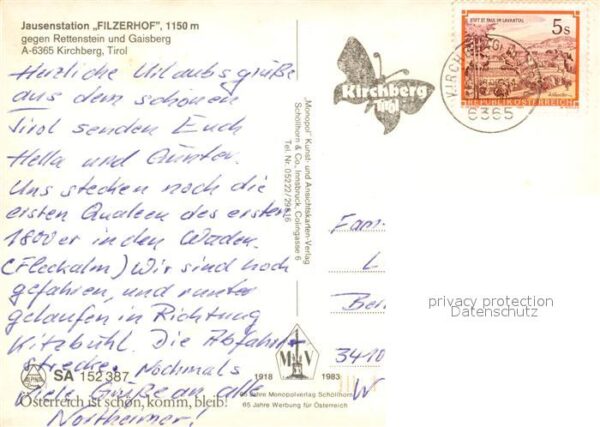 Jausenstation „FILZERHOF", 1150 m
gegen Rettenstein und Gaisberg
A-6365 Kirchberg, Tirol
Herzliche Urlaubsgrüße
aus dem schönen
Tirol senden Euch
Hella und Günter.
Uns stecken noch die
ersten Qualen des ersten
1800er in den Waden.
(Fleckalm) Wir sind hoch
gefahren, und runter
gelaufen in Richtung
Kitzbühl. Die Abfahrt-
strecke. Nochmals
viele Grüße an alle
Northeimer!
SA 152387
Österreich ist schön, komm, bleib!
„Monopol" Kunst- und Ansichtskarten-Verlag
Schöllhorn & Co., Innsbruck, Colingasse 6
Tel. Nr. 05222/29816
Kirchberg
Tirol
STIFT ST. PAUL IM LAVANTTAL
5 S
REPUBLIK ÖSTERREICH
6365
Fam.
L
3410
MV
1918 1983
65 Jahre Monopolverlag Schöllhorn
65 Jahre Werbung für Österreich
privacy protection
Datenschutz